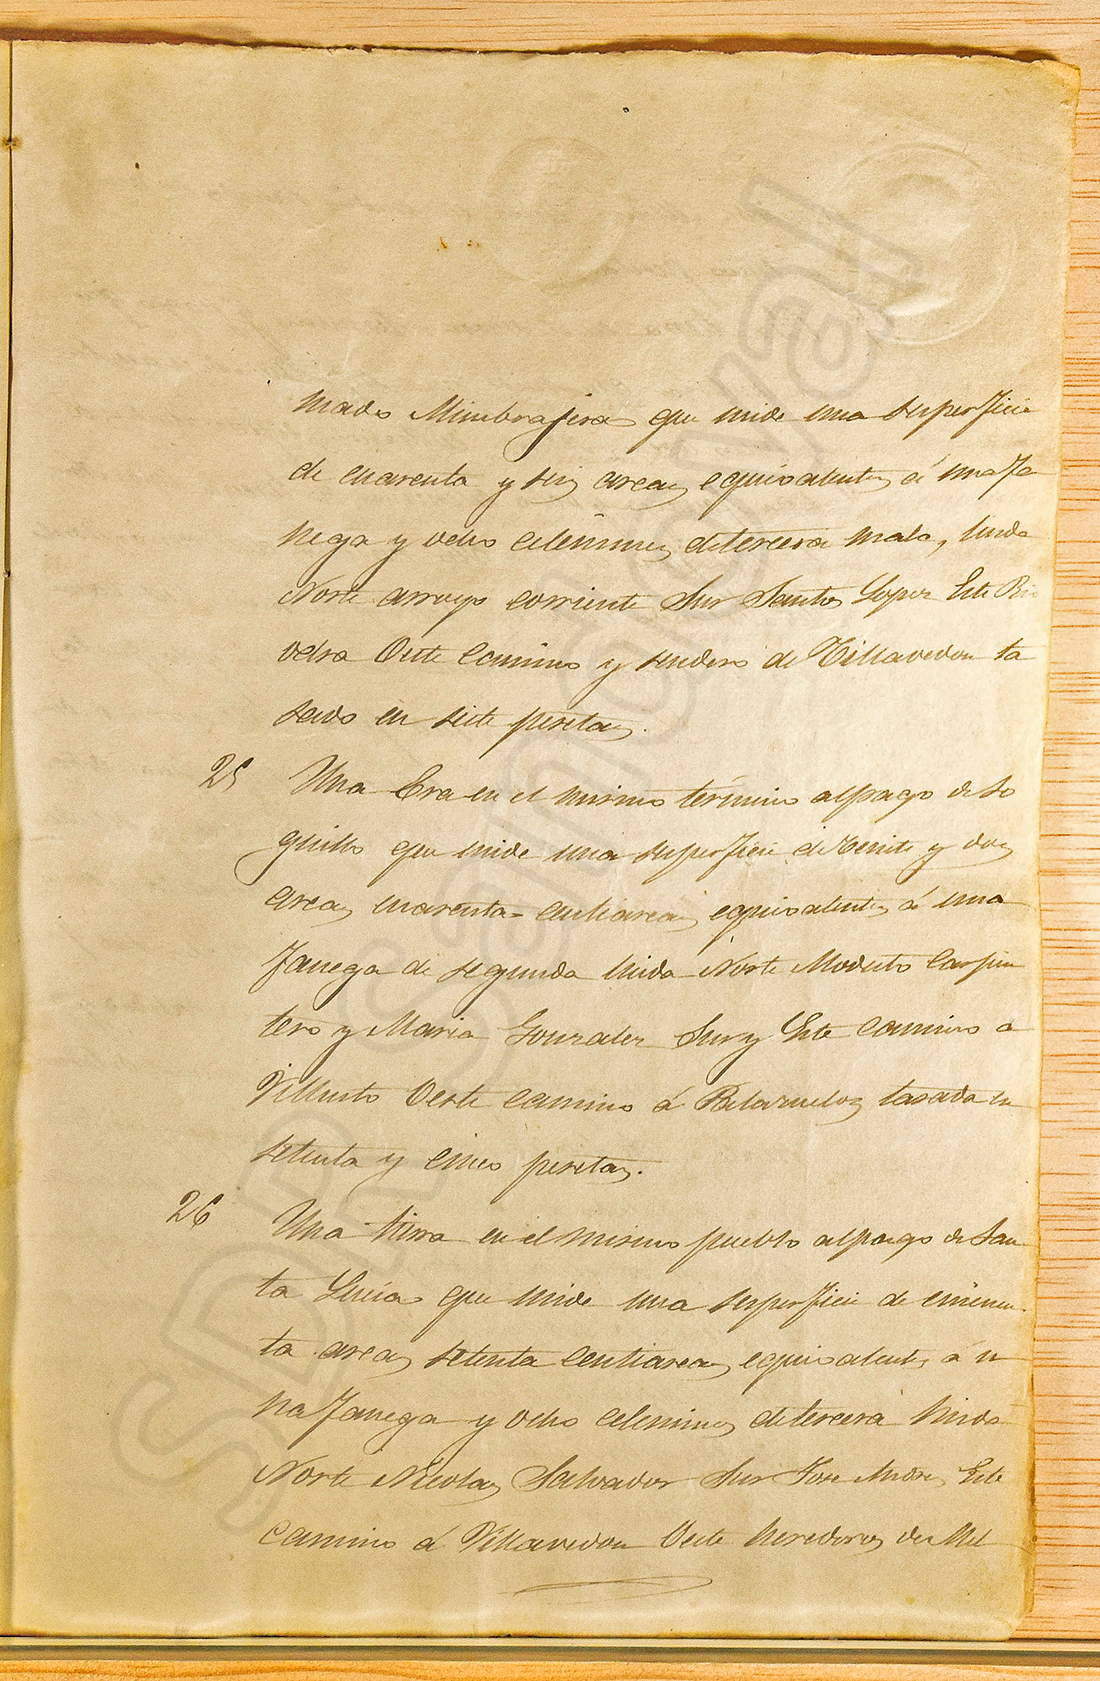 mado Mimbrajera que mide una superficie
de cuarenta y seis areas equivalentes á una fa
nega y ocho celemines de tercera mala, linda
Norte arroyo corriente Sur Santos Lopez Este Rio
odra Oeste camino y sendero de Villavedon ta
sado en siete pesetas.
25 Una Era en el mismo término al pago de
que mide una superficie de veinte y dos
areas cuarenta centiareas equivalentes á una
fanega de segunda linda Norte Modesto Carpin
tero y Maria Gonzalez Sur y Este camino a
Oeste camino á tasada en
setenta y cinco pesetas.
26 Una tierra en el mismo pueblo al pago de San
ta Lucia que mide una superficie de cincuen-
ta areas setenta centiareas equivalentes á u
na fanega y ocho celemines de tercera linda
Norte Nicolas Salvador Sur Jose Andres Este
camino á Villavedon Oeste herederos de Mel